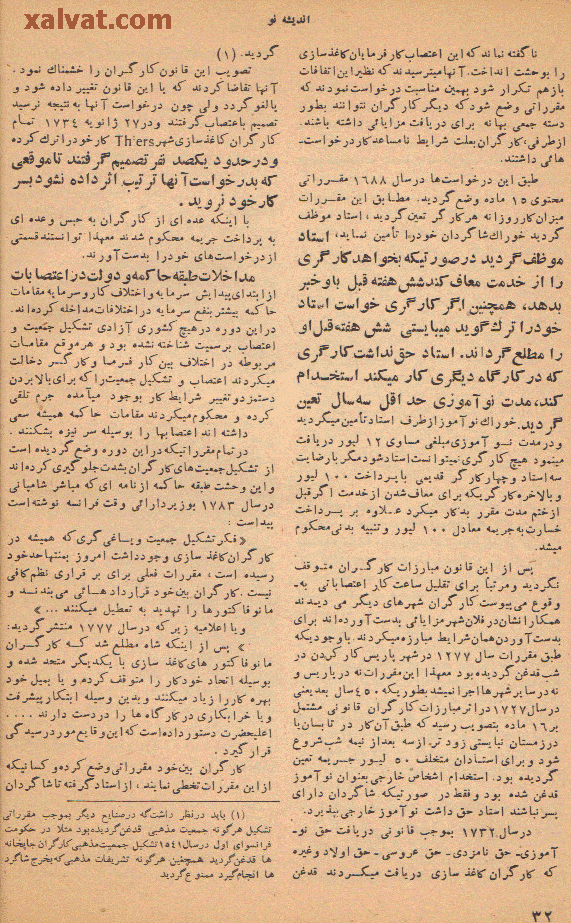 xalvat.com
اندیشه نو
ناگفته نماند که این اعتصاب کارفرمایان کاغذسازی
را بوحشت انداخت. آنها میترسیدند که نظیر این اتفاقات
بازهم تکرار شود بهمین مناسبت درخواست نمودند که
مقرراتی وضع شود که دیگر کارگران نتوانند بطور
دسته جمعی بهانه برای دریافت مزایائی داشته باشند.
ازطرفی، کارگران بعلت شرایط نامساعد کار درخواست-
هائی داشتند.
طبق این درخواست‌ها درسال ۱۶۸۸ مقرراتی
محتوی ۱۵ ماده وضع گردید. مطابق این مقررات
میزان کار روزانه هر کارگر تعین گردید، استاد موظف
گردید خوراك شاگردان خودرا تأمین نماید، استاد
موظف گردید درصورتیکه بخواهد کارگری
را از خدمت معاف کند شش هفته قبل باو خبر
بدهد، همچنین اگر کارگری خواست استاد
خودرا ترك گوید میبایستی شش هفته قبل او
را مطلع گرداند. استاد حق نداشت کارگری
که در کارگاه دیگری کار میکند استخدام
کند، مدت نو آموزی حد اقل سه سال تعین
گردید. خوراك نو آموز ازطرف استاد تأمین میگردید
ودرمدت نو آموزی مبلغی مساوی ۱۲ لیور دریافت
مینمود هیچ کارگری نمیتوانست استاد شود مگر با رضایت
سه استاد و چهار کارگر قدیمی با پرداخت ۱۰۰ لیور
و بالاخره کارگریکه برای معاف شدن از خدمت اگر قبل
از ختم مدت مقرر بد کار میکرد علاوه بر پرداخت
خسارت به جریمه معادل ۱۰۰ لیور و تنبیه بدنی محکوم
میشد.
پس از این قانون مبارزات کارگران متوقف
نگردید و مرتباً برای تقلیل ساعت کار اعتصاباتی به-
وقوع می‌پیوست کارگران شهرهای دیگر می دیدند
همکارانشان در فلان شهر مزایائی بدست آورده‌اند برای
بدست آوردن همان شرایط مبارزه میکردند. باوجودیکه
طبق مقررات سال ۱۲۷۷ در شهر پاریس کار کردن در
شب قدغن گردیده بود معهذا این مقررات نه در پاریس و
نه در سایر شهرها اجرا نمیشد بطوریکه ۴۵۰ سال بعد یعنی
درسال ۱۷۲۷ در اثر مبارزات کارگران قانونی مشتمل
بر ۱۶ ماده بتصویب رسید که طبق آن کار در تابستان یا
در زمستان نبایستی زود تر از سه بعد از نیمه شب شروع
شود و برای استادان متخلف ۵۰ لیور جریمه تعین
گردیده بود. استخدام اشخاص خارجی بعنوان نو آموز
قدغن شده بود و فقط در صورتیکه شاگردان دارای
پسر نباشند استاد حق داشت نو آموز خارجی بپذیرد.
درسال ۱۷۳۲ بموجب قانونی دریافت حق نو-
آموزی- حق نامزدی- حق عروسی- حق اولاد وغیره
که کارگران کاغذ سازی دریافت میکردند قدغن
گردید. (۱)
تصویب این قانون کارگران را خشمناك نمود.
آنها تقاضا کردند که یا این قانون تغییر داده شود و
یا لغو گردد ولی چون درخواست آنها به نتیجه نرسید
تصمیم باعتصاب گرفتند و در ۲۷ ژانویه ۱۷۳۴ تمام
کارگران کاغذسازی شهر Thiers کار خود را ترك کرده
و در حدود یکصد نفر تصمیم گرفتند تا موقعی
که بدرخواست آنها ترتیب اثر داده نشود بسر
کار خود نروید.
با اینکه عده ای از کارگران به حبس وعده ای
به پرداخت جریمه محکوم شدند معهذا توانستند قسمتی
از درخواست‌های خود را بدست آورند.
مداخلات طبقه حاکمه و دولت در اعتصابات
از ابتدای پیدایش سرمایه و اختلاف کار و سرمایه مقامات
حاکمه بیشتر بنفع سرمایه در اختلافات مداخله کرده‌اند.
در این دوره در هیچ کشوری آزادی تشکیل جمعیت و
اعتصاب برسمیت شناخته نشده بود و هر موقع مقامات
مربوطه در اختلاف بین کار فرما و کارگر دخالت
میکردند اعتصاب و تشکیل جمعیت را که برای بالا بردن
دستمزد و تغییر شرایط کار بوجود میآمده جرم تلقی
کرده و محکوم میکردند مقامات حاکمه همیشه سعی
داشته اند اعتصابها را بوسیله سر نیزه بشکنند.
در تمام مقرراتیکه در این دوره وضع گردیده است
از تشکیل جمعیت‌های کارگران بشدت جلوگیری کرده‌اند
و این وحشت طبقه حاکمه از نامه ای که مباشر شامپانی
درسال ۱۷۸۳ بوزیر دارائی وقت فرانسه نوشته است
پیداست :
«فکر تشکیل جمعیت و یاغی گری که همیشه در
کارگران کاغذ سازی وجود داشت امروز بمنتها حد خود
رسیده است، مقررات فعلی برای بر قراری نظم کافی
نیست. کارگران بین خود قرارداد هائی می بندند و
مانوفاکتورها را تهدید به تعطیل میکنند ...»
و یا اعلامیه زیر که درسال ۱۷۷۷ منتشر گردید:
«پس از اینکه شاه مطلع شد که کارگران
مانوفاکتور های کاغذ سازی با یکدیگر متحد شده و
بوسیله اتحاد خود کار را متوقف کرده و یا بمیل خود
بهره کار را زیاد میکنند و بدین وسیله ابتکار پیشرفت
و یا خرابکاری در کارگاه ها را در دست دارند ....
اعلیحضرت دستور داده است که این وقایع مورد رسیدگی
قرار گیرد.
کارگران بین خود مقرراتی وضع کرده و کسانیکه
از این مقررات تخطی نمایند، از استاد گرفته تا شاگردان
(۱) باید در نظر داشت که در صنایع دیگر بموجب مقرراتی
تشکیل هر گونه جمعیت مذهبی قدغن گردیده بود مثلا در حکومت
فرانسوای اول درسال ۱۵۴۱ تشکیل جمعیت مذهبی کارگران چاپخانه
ها قدغن گردید همچنین هر گونه تشریفات مذهبی که بخرج شاگرد
ها انجام گیرد ممنوع گردید
۳۲